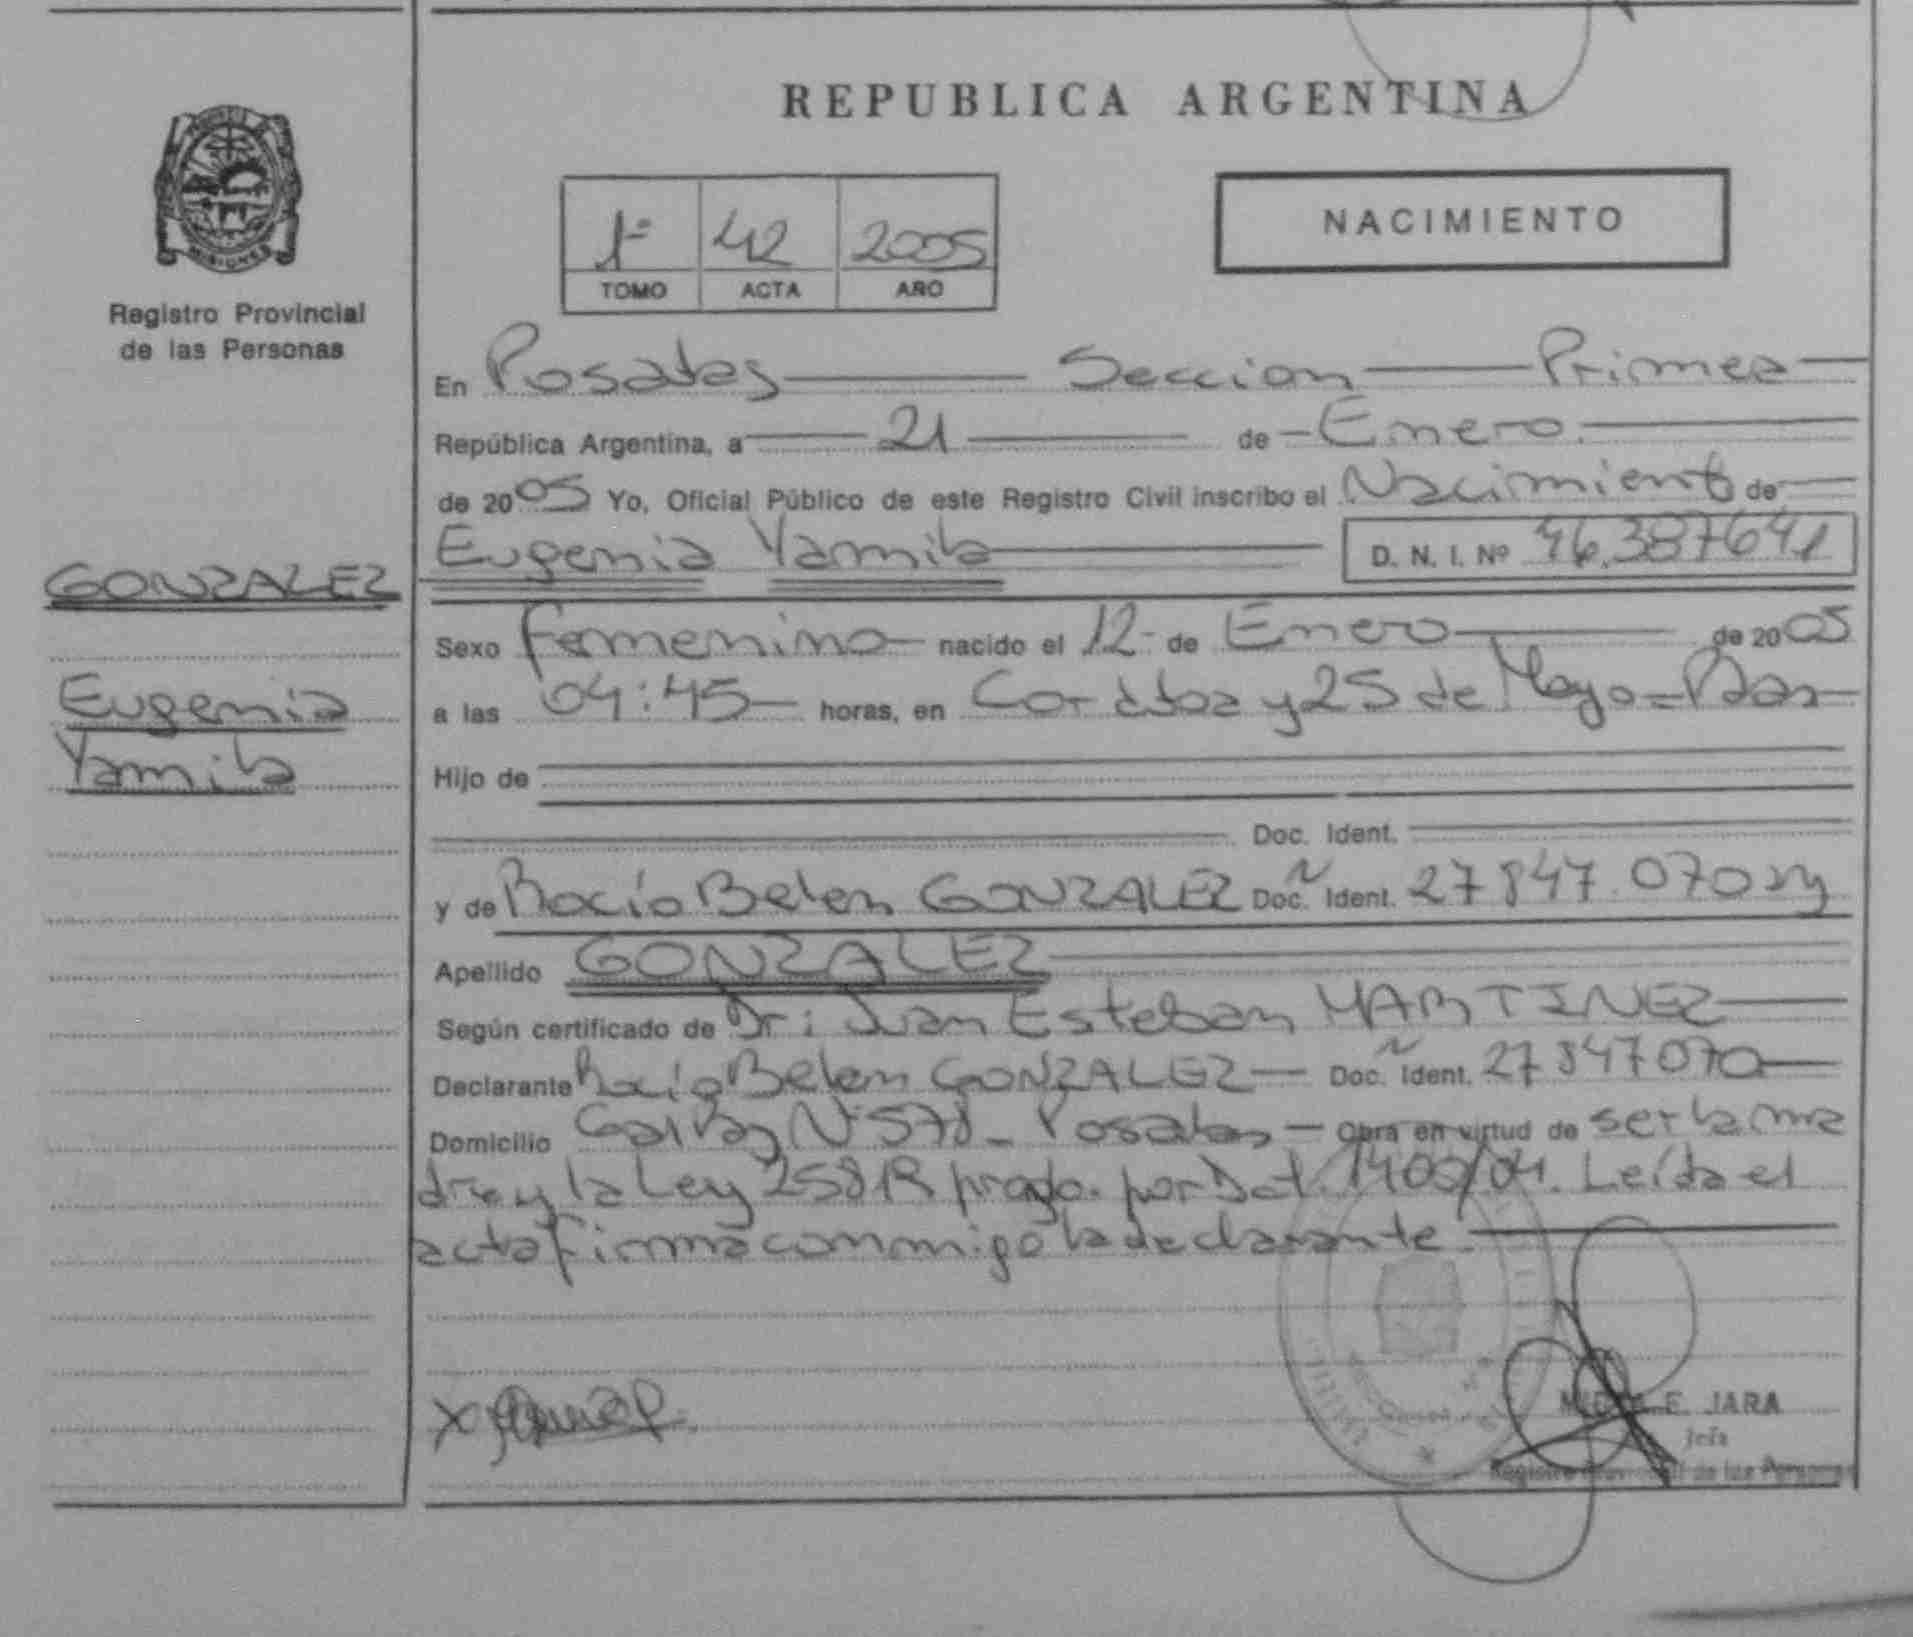 REPUBLICA ARGENTINA
MISIONES
Registro Provincial
de las Personas
1º 42 2005
TOMO ACTA AÑO
NACIMIENTO
En Posadas Seccion Primera
República Argentina, a 21 de Enero
de 2005 Yo, Oficial Público de este Registro Civil inscribo el Nacimiento de
Eugenia Yamila D. N. I. Nº 46.387641
GONZALEZ
Eugenia
Yamila
Sexo Femenino nacido el 12 de Enero de 2005
a las 04:45 horas, en Cordoba y 25 de Mayo - Pdas
Hijo de
Doc. Ident.
y de Rocío Belen GONZALEZ Doc. Ident. 27847.070
Apellido GONZALEZ
Según certificado de Dr: Juan Esteban MARTINEZ
Declarante Rocío Belen GONZALEZ Doc. Ident. 27847070
Domicilio Nº 578 - Posadas - Obra en virtud de ser la ma
dre y la Ley por Dct. 1400/04. Leída el
acta firma conmigo la declarante.
X
E. JARA
Jefa
Registro Provincial de las Personas